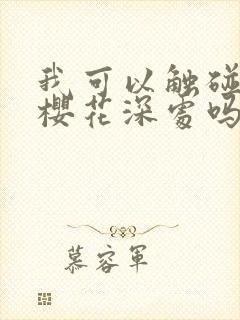 我可以触碰
樱花深处吗
慕容军